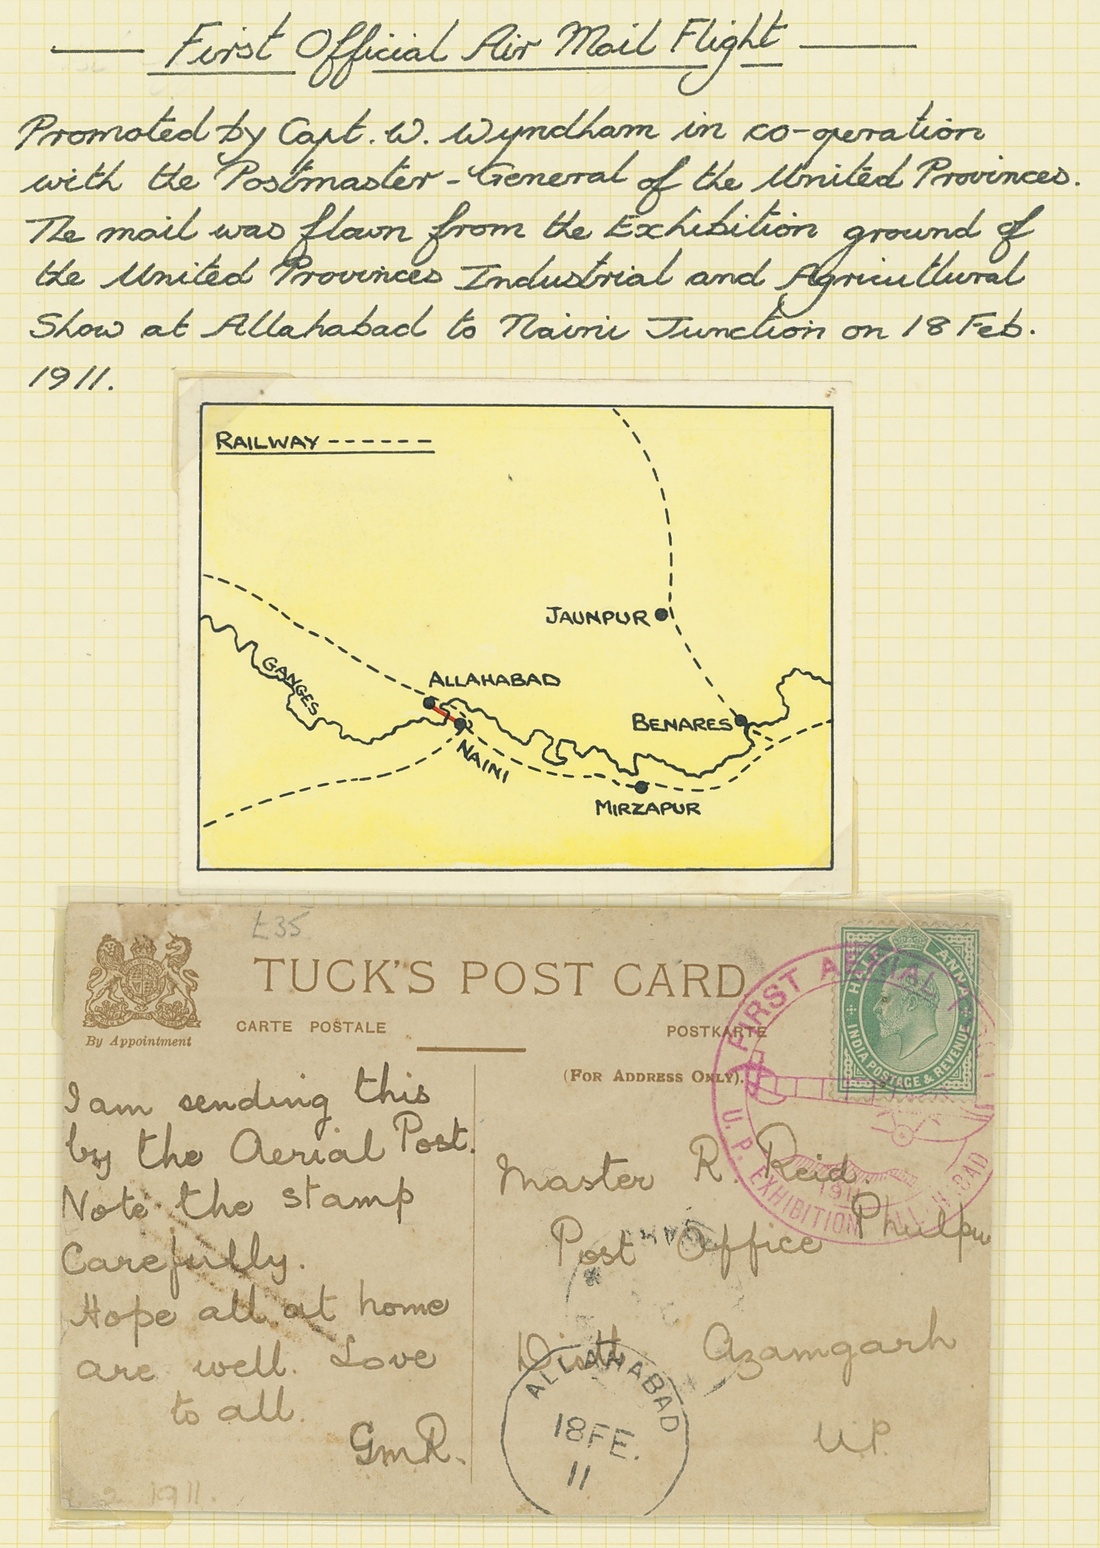 First Official Air Mail Flight
Promoted by Capt. W. Wyndham in co-operation
with the Postmaster-General of the United Provinces.
The mail was flown from the Exhibition ground of
the United Provinces Industrial and Agricultural
Show at Allahabad to Naini Junction on 18 Feb.
1911.
RAILWAY ------
JAUNPUR
GANGES
ALLAHABAD
BENARES
NAINI
MIRZAPUR
£35
TUCK'S POST CARD
CARTE POSTALE
POSTKARTE
By Appointment
(FOR ADDRESS ONLY).
HALF ANNA
INDIA POSTAGE & REVENUE
FIRST AERIAL
1911
U. P. EXHIBITION ALLAHABAD
I am sending this
by the Aerial Post.
Note the stamp
Carefully.
Hope all at home
are well. Love
to all.
GmR.
2 1911.
Master R. Reid.
Post Office Phulpu
Distt. Azamgarh
U.P.
ALLAHABAD
18FE.
11